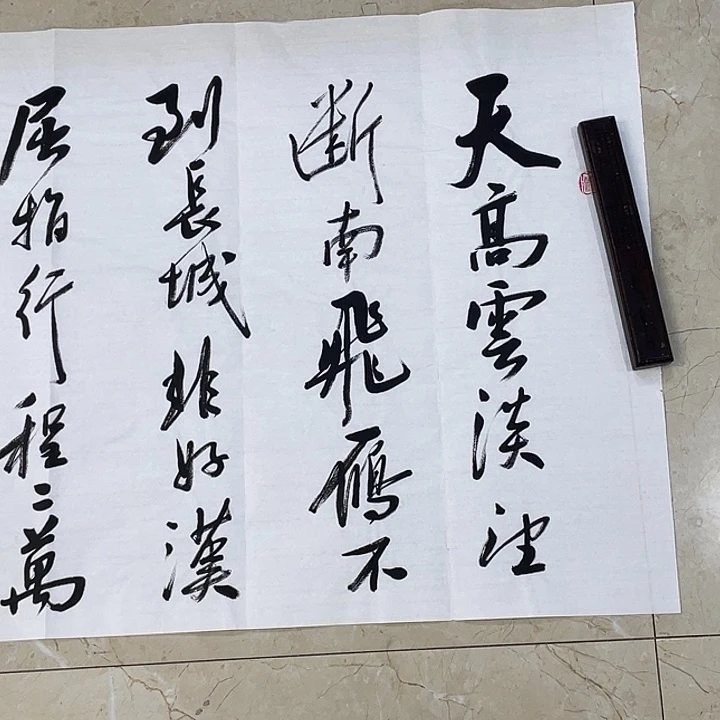 天高雲淡望
斷南飛鴈不
到長城非好漢
屈指行程二萬